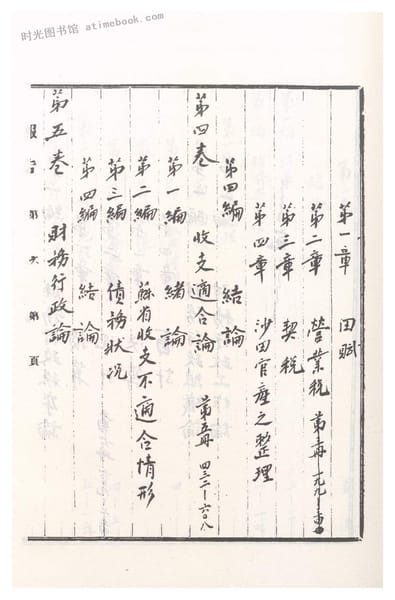 时光图书馆 atimebook.com
第一章 田賦
第二章 營業稅 第三冊
第三章 契稅
第四章 沙田官產之整理
第四編 結論
第四卷 收支適合論 第五冊 四三二—六〇八
第一編 緒論
第二編 蘇省收支不適合情形
第三編 債務狀况
第四編 結論
第五卷 財務行政論
第 次 第 頁